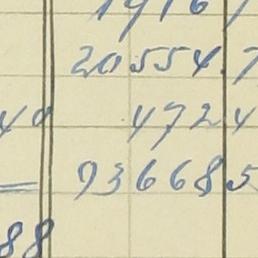 1916
20554.7
40 4724
936685
88